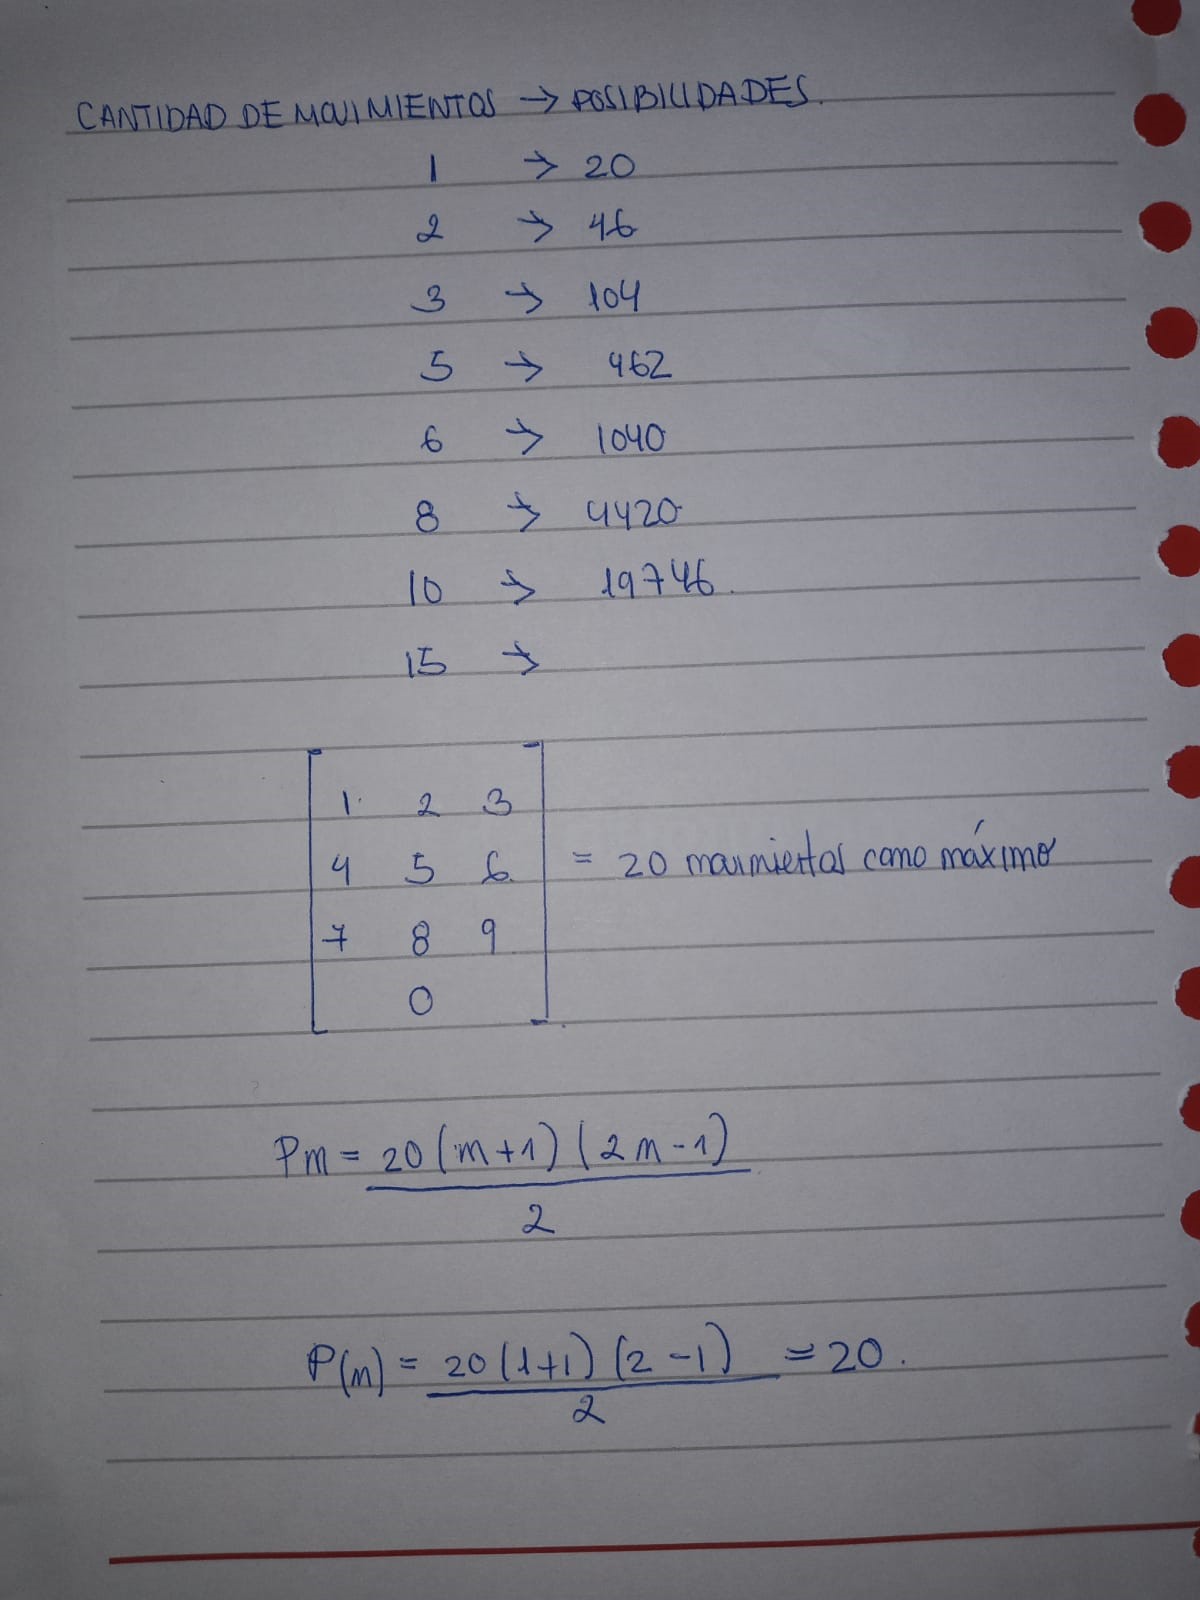 CANTIDAD DE MOVIMIENTOS → POSIBILIDADES.
1 → 20
2 → 46
3 → 104
5 → 462
6 → 1040
8 → 4420
10 → 19746.
15 →
1 2 3
4 5 6 = 20 movimientos como máximo
7 8 9
0
Pm = 20(m+1)(2m-1)
2
P(m) = 20(1+1)(2-1) = 20.
2